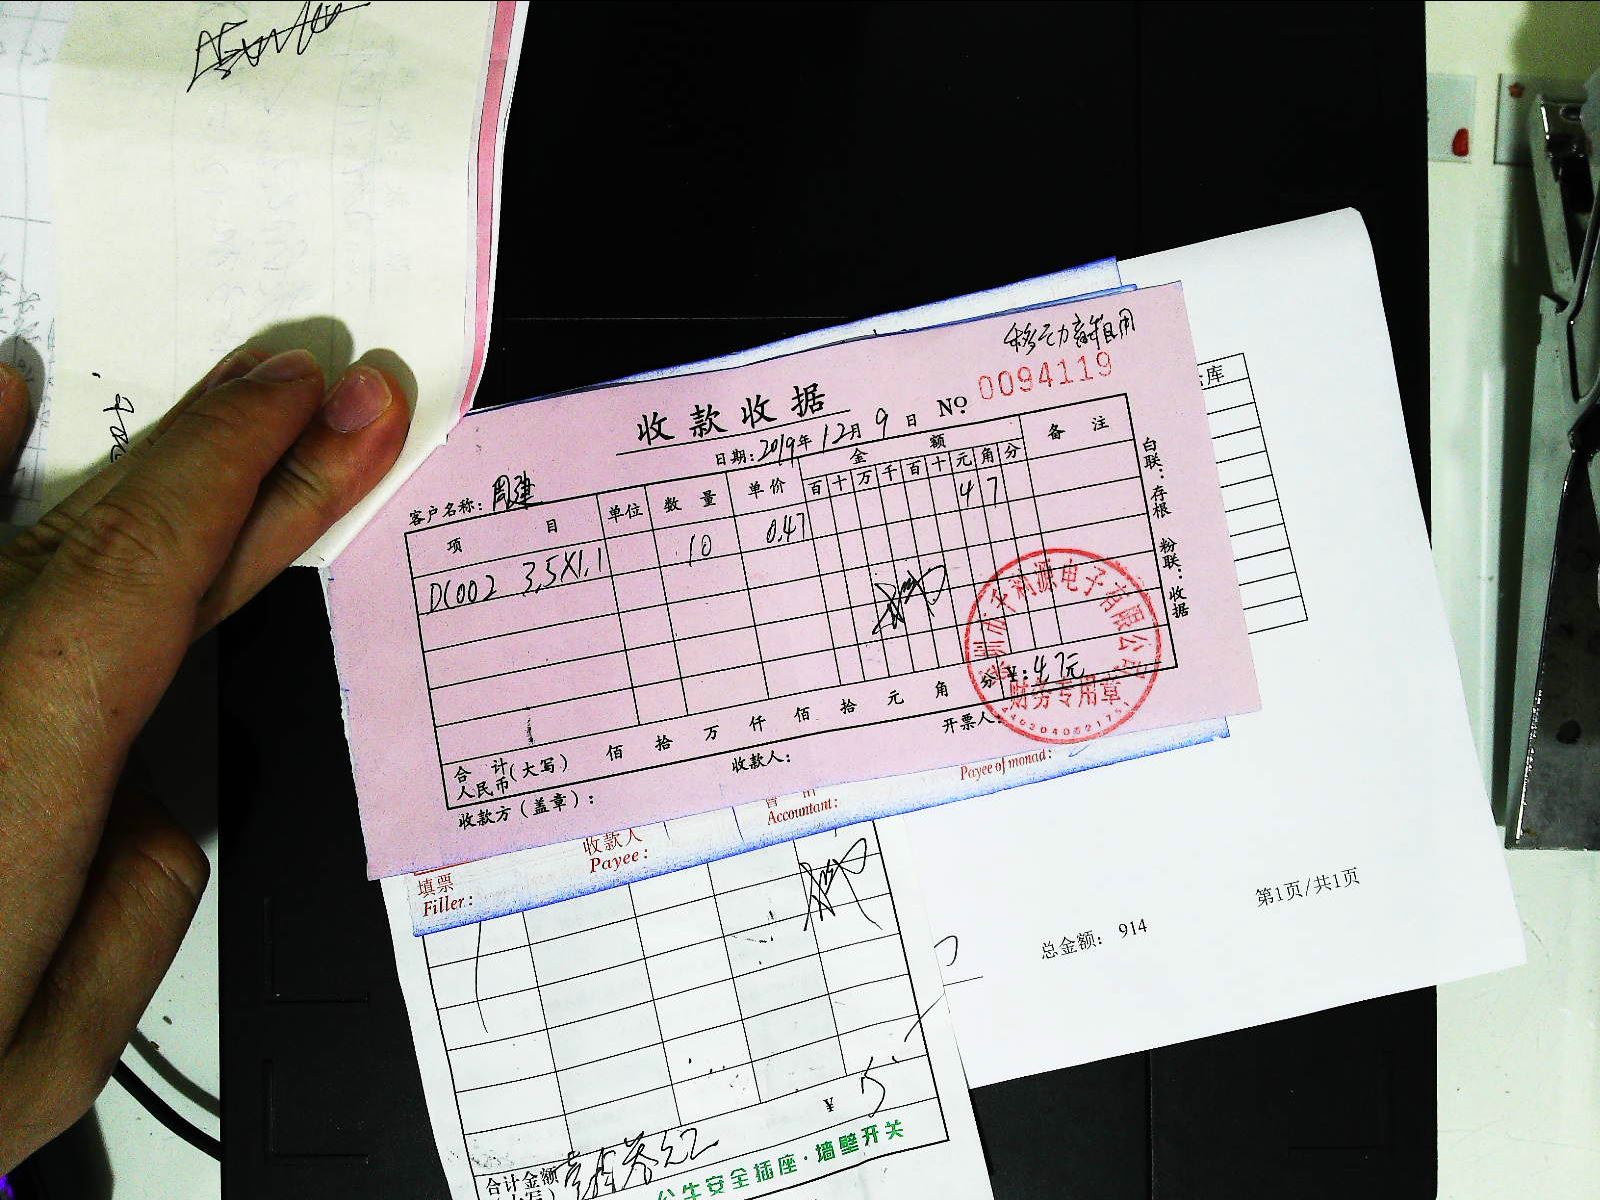 0094119
收款收据 No
日期:2019年12月9日
客户名称:周建
项 目 单位 数 量 单价 金 额 备 注
百 十 万 千 百 十 元 角 分
DC002 3.5X1.1 10 0.47 4 7
合 计
人民币(大写) 佰 拾 万 仟 佰 拾 元 角 分 ¥:4.7元
收款方(盖章): 收款人: 开票人:
白联:存根 粉联:收据
电子有限公司
财务专用章
库
填票
Filler:
收款人
Payee:
Accountant:
Payee of monad:
总金额: 914
第1页/共1页
¥ 5
合计金额
公牛安全插座·墙壁开关